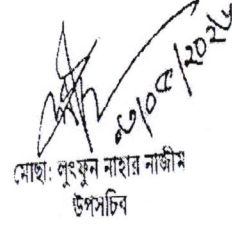 ২৬/০৫/২০২৬
মোছা: লুৎফুন নাহার নাজীম
উপসচিব